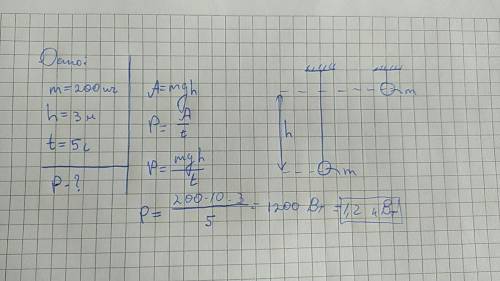 Дано:
m=200кг
h=3м
t=5с
P-?
A=mgh
P=A/t
P=mgh/t
P=200·10·3/5=1200 Вт=1,2 кВт
m
h
m